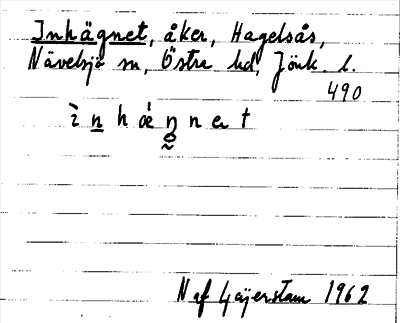 Inhägnet, åker, Hagelsås,
Nävelsjö sn, Östra hd, Jönk. l.
490
ì n h ǽ ŋ n e t
N af Geijerstam 1962